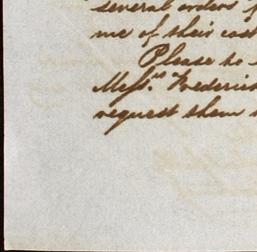 several orders f
me of their cost
Please to
Mess.rs Frederick
request them